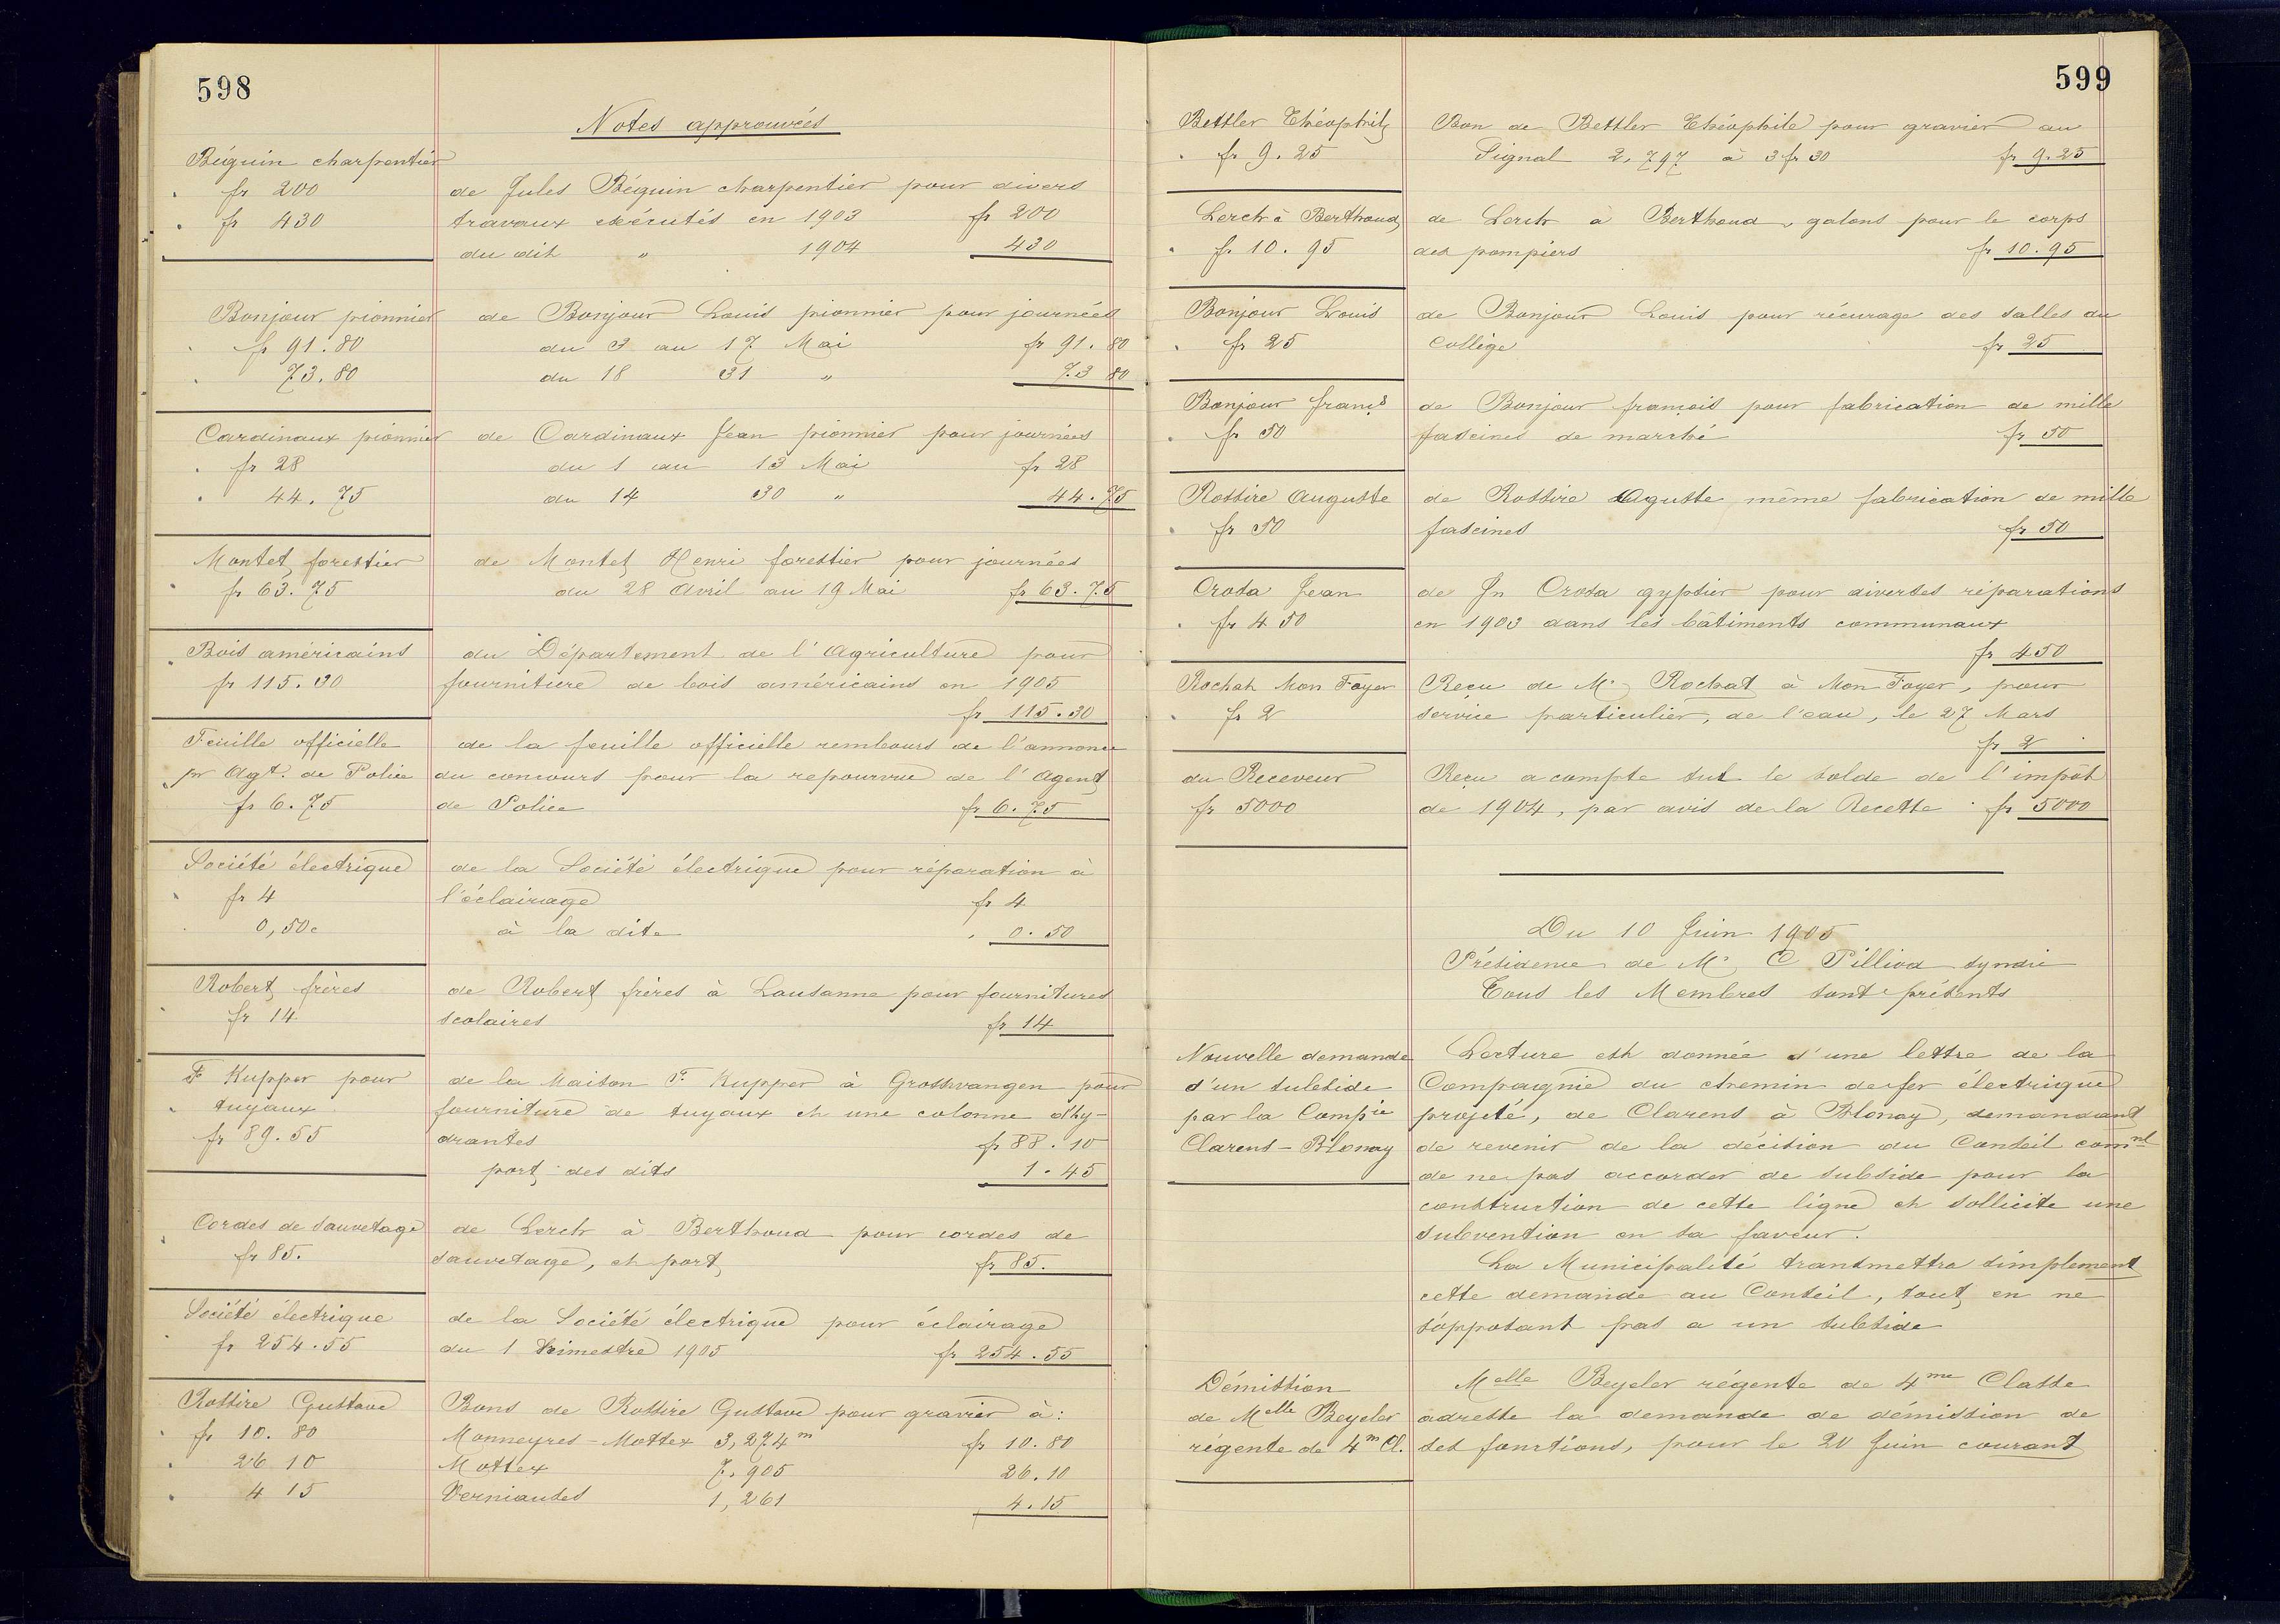 598
Notes approuvées
Béguin charpentier
fr 200
fr 430
de Jules Béguin charpentier pour divers
travaux exécutés en 1903 fr 200
du dit " 1904 430
Bonjour pionnier
fr 91.80
73.80
de Bonjour Louis pionnier pour journées
du 3 au 17 Mai fr 91.80
du 18 31 " 73 80
Cardinaux pionnier
fr 28
44.75
de Cardinaux Jean pionnier pour journées
du 1 au 13 Mai fr 28
du 14 30 " 44.75
Montet forestier
fr 63.75
de Montet Henri forestier pour journées
du 28 Avril au 19 Mai fr 63.75
Bois américains
fr 115.30
du Département de l'Agriculture pour
fourniture de bois américains en 1905
fr 115.30
Feuille officielle
pr Agt. de Police
fr 6.75
de la feuille officielle rembours de l'annonce
du concours pour la repourvue de l'Agent
de Police fr 6.75
Société électrique
fr 4
0,50c
de la Société électrique pour réparation à
l'éclairage fr 4
à la dite 0.50
Robert frères
fr 14
de Robert frères à Lausanne pour fournitures
scolaires fr 14
F Kupper pour
tuyaux
fr 89.55
de la Maison F. Kupper à Grosswangen pour
fourniture de tuyaux et une colonne d'hy-
drantes fr 88.10
port des dits 1.45
Cordes de sauvetage
fr 85.
de Lerch à Berthoud pour cordes de
sauvetage, et port fr 85.
Société électrique
fr 254.55
de la Société électrique pour éclairage
du 1 trimestre 1905 fr 254.55
Rossire Gustave
fr 10.80
26 10
4 15
Bons de Rossire Gustave pour gravier à:
Monneyres-Mottex 3,274m fr 10.80
Mottex 7.905 26.10
Verniaudes 1,261 4.15
599
Bettler Théophile
fr 9.25
Bon de Bettler Théophile pour gravier au
Signal 2,797 à 3 fr 30 fr 9.25
Lerch à Berthoud
fr 10.95
de Lerch à Berthoud, galons pour le corps
des pompiers fr 10.95
Bonjour Louis
fr 25
de Bonjour Louis pour récurage des salles du
Collège fr 25
Bonjour franç.s
fr 50
de Bonjour françois pour fabrication de mille
fascines de marché fr 50
Rossire Auguste
fr 50
de Rossire Aguste même fabrication de mille
fascines fr 50
Crosa Jean
fr 450
de Jn Crosa gypsier pour diverses réparations
en 1903 dans les bâtiments communaux
fr 450
Rochat Mon Foyer
fr 2
Reçu de Mr Rochat à Mon Foyer, pour
service particulier, de l'eau, le 27 Mars
fr 2
du Receveur
fr 5000
Reçu acompte sur le solde de l'impôt
de 1904, par avis de la Recette fr 5000
Du 10 Juin 1905
Présidence de Mr C Pilliod syndic
Tous les Membres sont présents
Nouvelle demande
d'un subside
par la Compie
Clarens-Blonay
Lecture est donnée d'une lettre de la
Compagnie du chemin de fer électrique
projeté, de Clarens à Blonay, demandant
de revenir de la décision du Conseil comnl
de ne pas accorder de subside pour la
construction de cette ligne et sollicite une
subvention en sa faveur.
La Municipalité transmettra simplement
cette demande au Conseil, tout en ne
s'opposant pas a un subside
Démission
de Melle Beyeler
régente de 4m Cl.
Melle Beyeler régente de 4me Classe
adresse la demande de démission de
ses fonctions, pour le 20 Juin courant